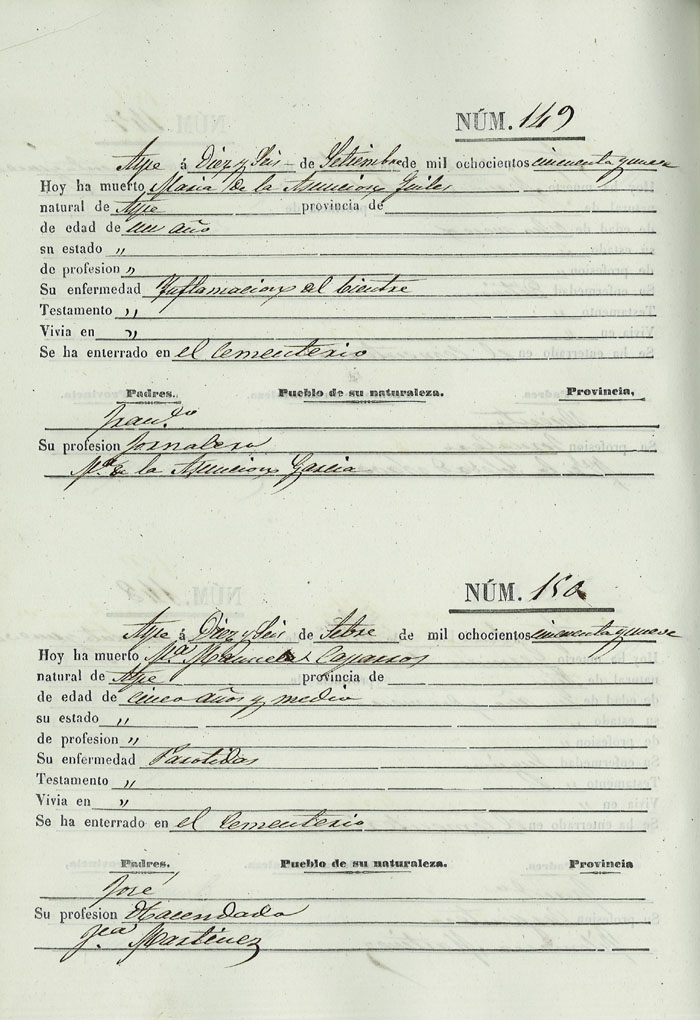 NÚM. 149
Aspe á Diez y Seis de Setiembre de mil ochocientos cincuenta y nueve
Hoy ha muerto Maria de la Asuncion Guiles
natural de Aspe provincia de
de edad de un año
sn estado „
de profesion „
Su enfermedad Inflamacion al vientre
Testamento „
Vivia en „
Se ha enterrado en el Cementerio
Padres. Pueblo de su naturaleza. Provincia,
Fran.co
Su profesion Jornalero
M.a de la Asuncion Garcia
NÚM. 150
Aspe á Diez y Seis de Setbre de mil ochocientos cincuenta y nueve
Hoy ha muerto M.a Manuela Caparros
natural de Aspe provincia de
de edad de cinco años y medio
su estado „
de profesion „
Su enfermedad Parotidas
Testamento „
Vivia en „
Se ha enterrado en el Cementerio
Padres. Pueblo de su naturaleza. Provincia
José
Su profesion Hacendado
Martinez